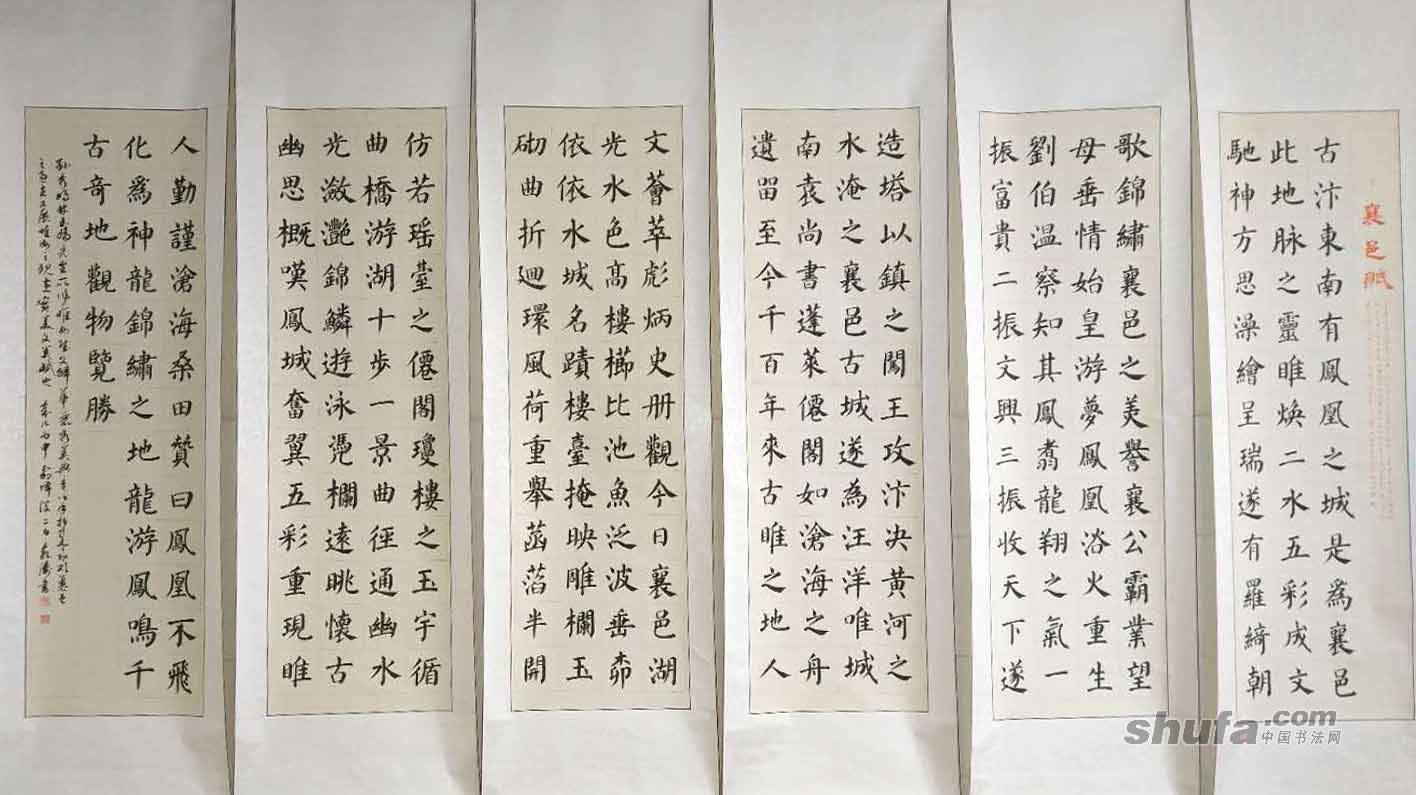 襄邑賦
古汴東南有鳳凰之城是為襄邑
此地脉之靈睢焕二水五彩成文
馳神方思澡繪呈瑞遂有羅綺朝
歌錦繡襄邑之美譽襄公霸業望
母垂情始皇游夢鳳凰浴火重生
劉伯温察知其鳳翥龍翔之氣一
振富貴二振文興三振收天下遂
造塔以鎮之闖王攻汴决黄河之
水淹之襄邑古城遂為汪洋唯城
南袁尚書蓬萊僊閣如滄海之舟
遺留至今千百年來古睢之地人
文薈萃彪炳史册觀今日襄邑湖
光水色髙樓櫛比池魚泛波垂桞
依依水城名蹟樓臺掩映雕欄玉
砌曲折迴環風荷重舉菡萏半開
仿若瑶臺之僊閣瓊樓之玉宇循
曲橋游湖十步一景曲徑通幽水
光瀲灧錦鱗遊泳凭欄遠眺懷古
幽思概嘆鳳城奮翼五彩重現睢
人勤謹滄海桑田贊曰鳳凰不飛
化為神龍錦繡之地龍游鳳鳴千
古奇地觀物覽勝
shufa.com
中国书法网